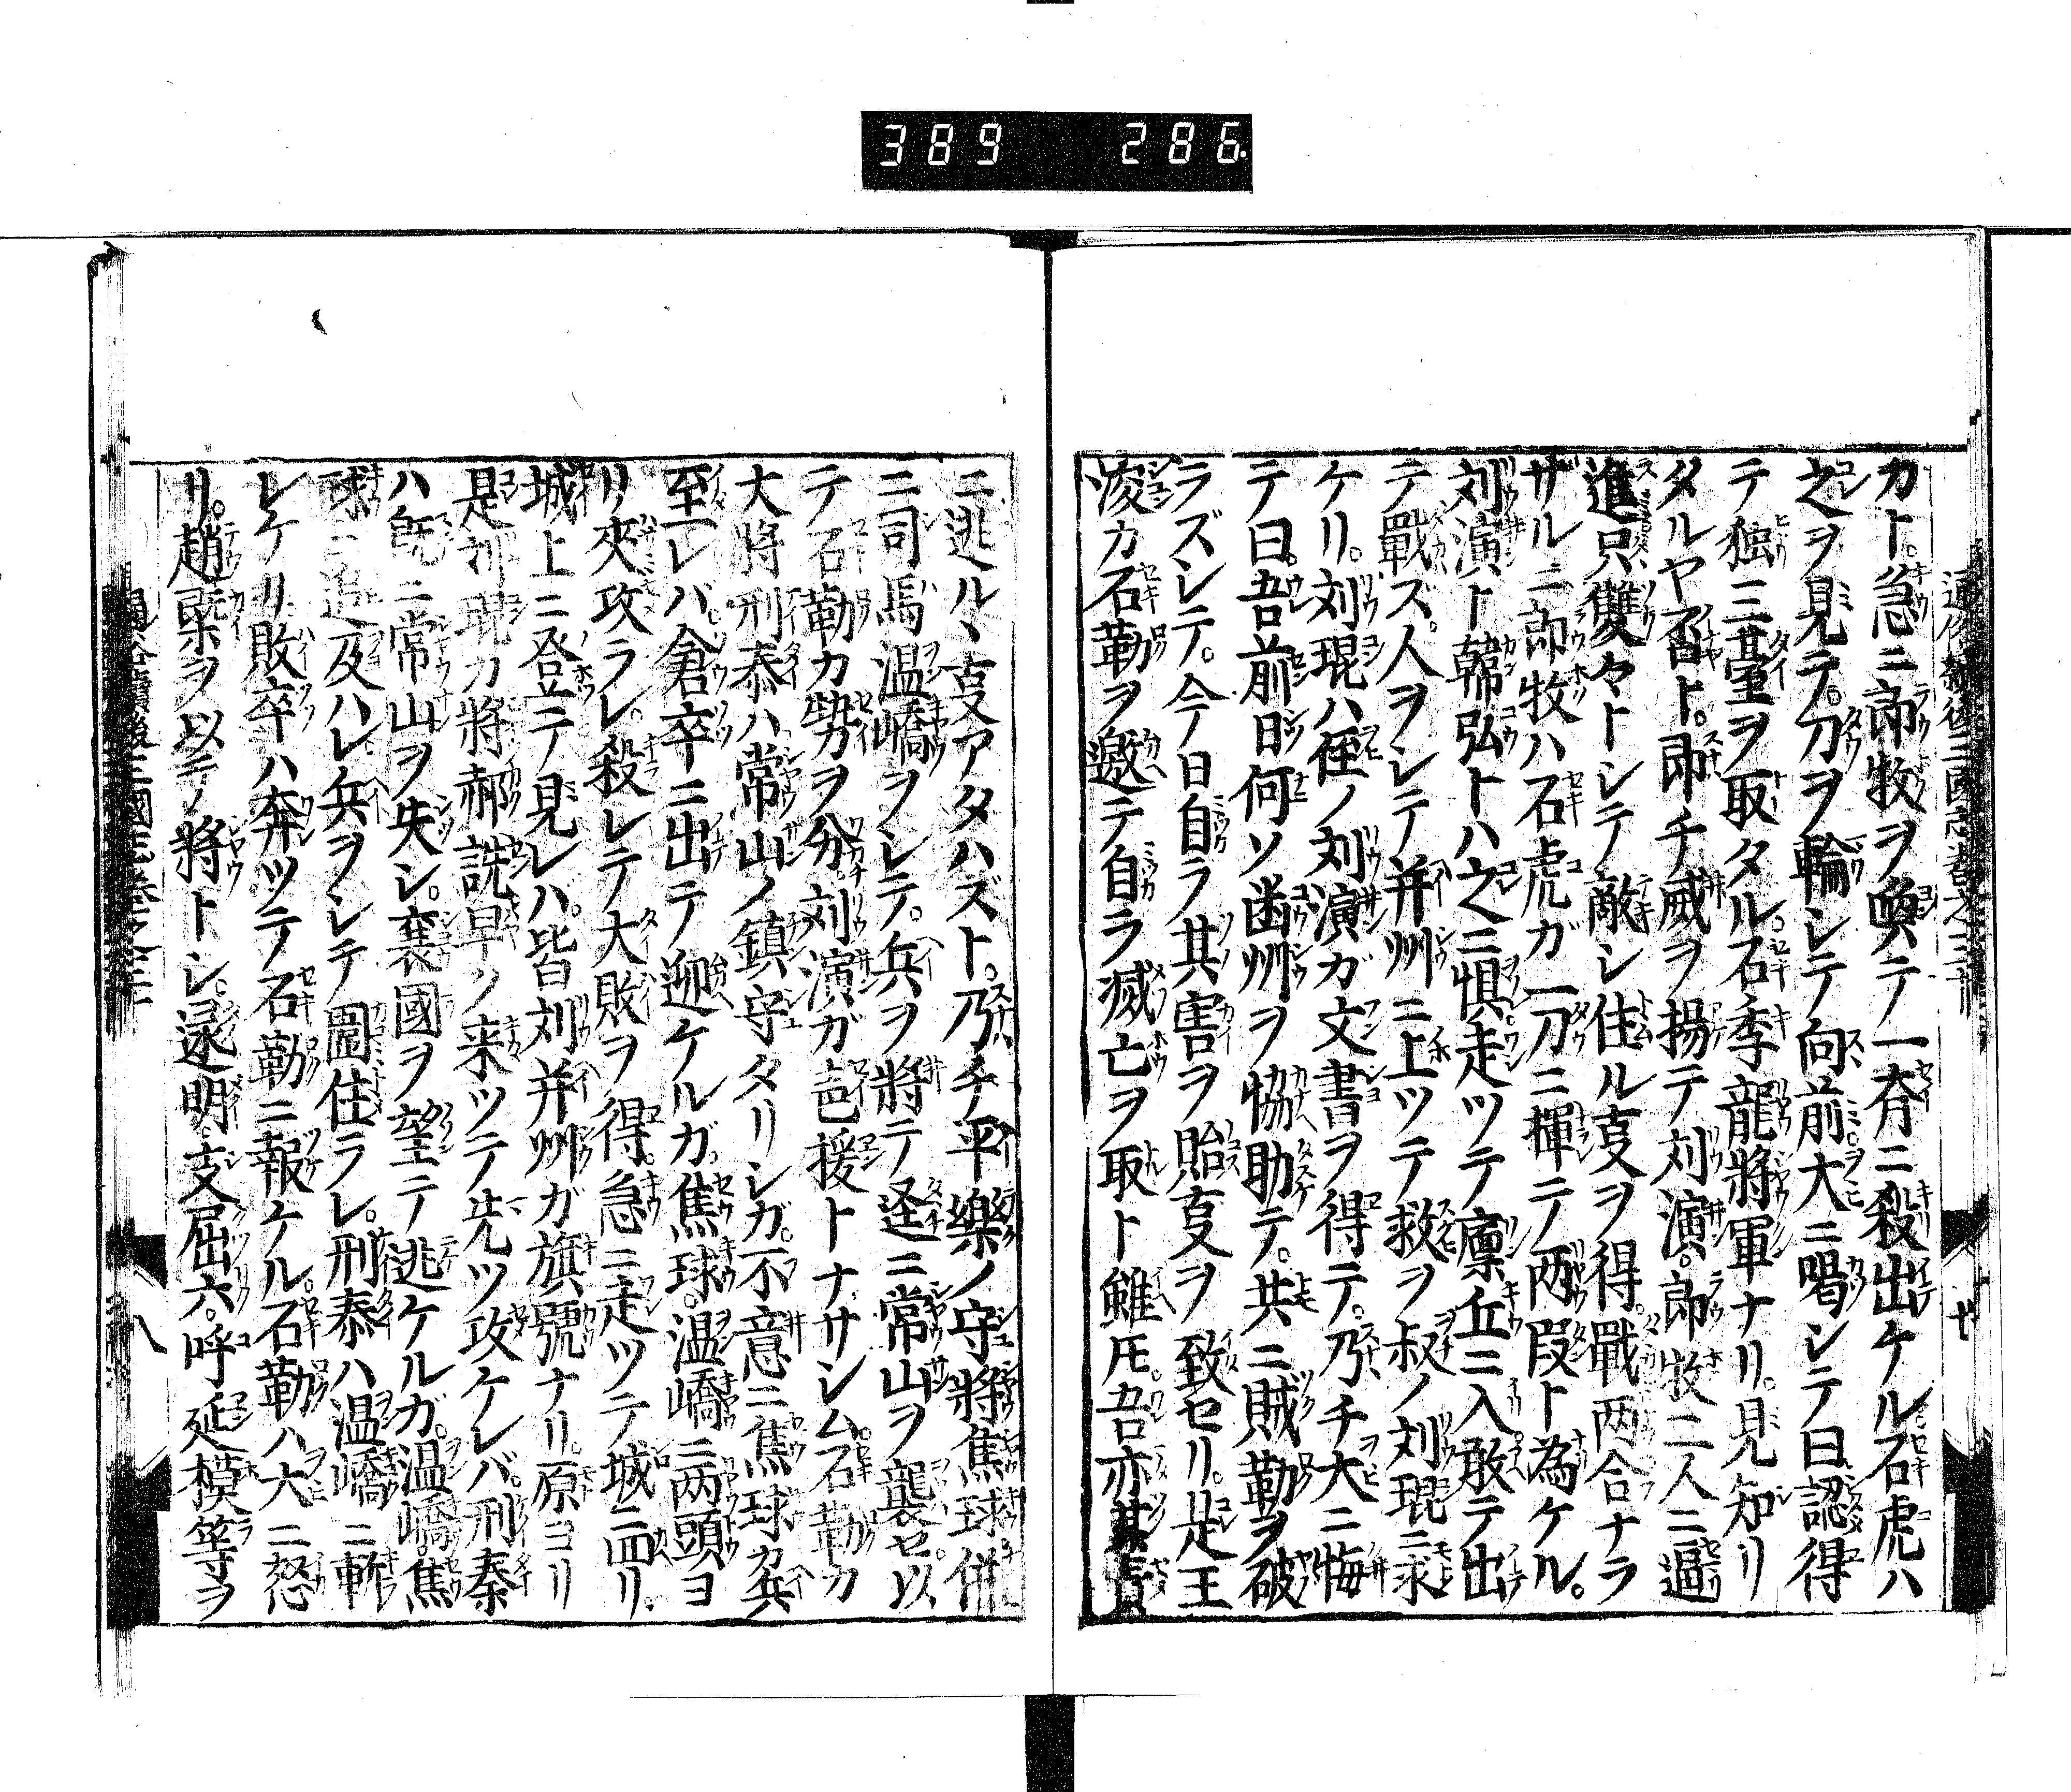 389 286
カト。急ニ郎牧ヲ喚テ一齊ニ殺出ケル。石虎ハ
之ヲ見テ。刀ヲ輪シテ向前大ニ喝シテ曰認得
テ独三臺ヲ取タル。石季龍將軍ナリ。見知リ
タルヤ否ト。即チ威ヲ揚テ刘演。郎牧二人ニ逼
進只雙々トシテ敵シ住ル叓ヲ得。戰两合ナラ
ザルニ郎牧ハ石虎ガ一刀ニ揮ニテ两段ト為ケル。
刘演ト韓弘トハ之ニ惧走ツテ廩丘ニ入敢テ出
テ戰ズ。人ヲシテ并州ニ上ツテ救ヲ叔ノ刘琨ニ求
ケリ。刘琨ハ侄ノ刘演ガ文書ヲ得テ。乃チ大ニ悔
テ曰。吾前日何ソ凾州ヲ協助テ。共ニ賊勒ヲ破
ラズシテ。今日自ラ其害ヲ貽叓ヲ致セリ。是王
浚カ石勒ヲ邀テ自ラ滅亡ヲ取ト雖𪜈。吾亦其責
ニ逃ル、叓アタハズト。乃チ平樂ノ守將焦球併
ニ司馬温嶠ヲシテ。兵ヲ將テ逕ニ常山ヲ襲セ。以
テ石勒カ勢ヲ分。刘演ガ邑援トナサシム。石勒カ
大將刑泰ハ常山ノ鎮守タリシガ。不意ニ焦球カ兵
至レバ。倉卒ニ出テ迎ケルガ。焦球。温嶠ニ两頭ヨ
リ夾攻ラレ。殺レテ大敗ヲ得。急ニ走ツテ城ニ皈リ。
城上ニ登テ見レハ。皆刘并州ガ旗號ナリ。原ヨリ
是刘琨カ將郝詵早ク来ツテ先ツ攻ケレバ。刑秦
ハ既ニ常山ヲ失シ。襄國ヲ望テ逃ケルガ。温嶠。焦
球ニ追及ハレ。兵ヲシテ圍住ラレ。刑泰ハ温嶠ニ斬
レケリ敗卒ハ奔ツテ石勒ニ報ケル。石勒ハ大ニ怒
リ。趙槩ヲ以テノ將トシ。逯明。支屈六。呼延模等ヲ
八